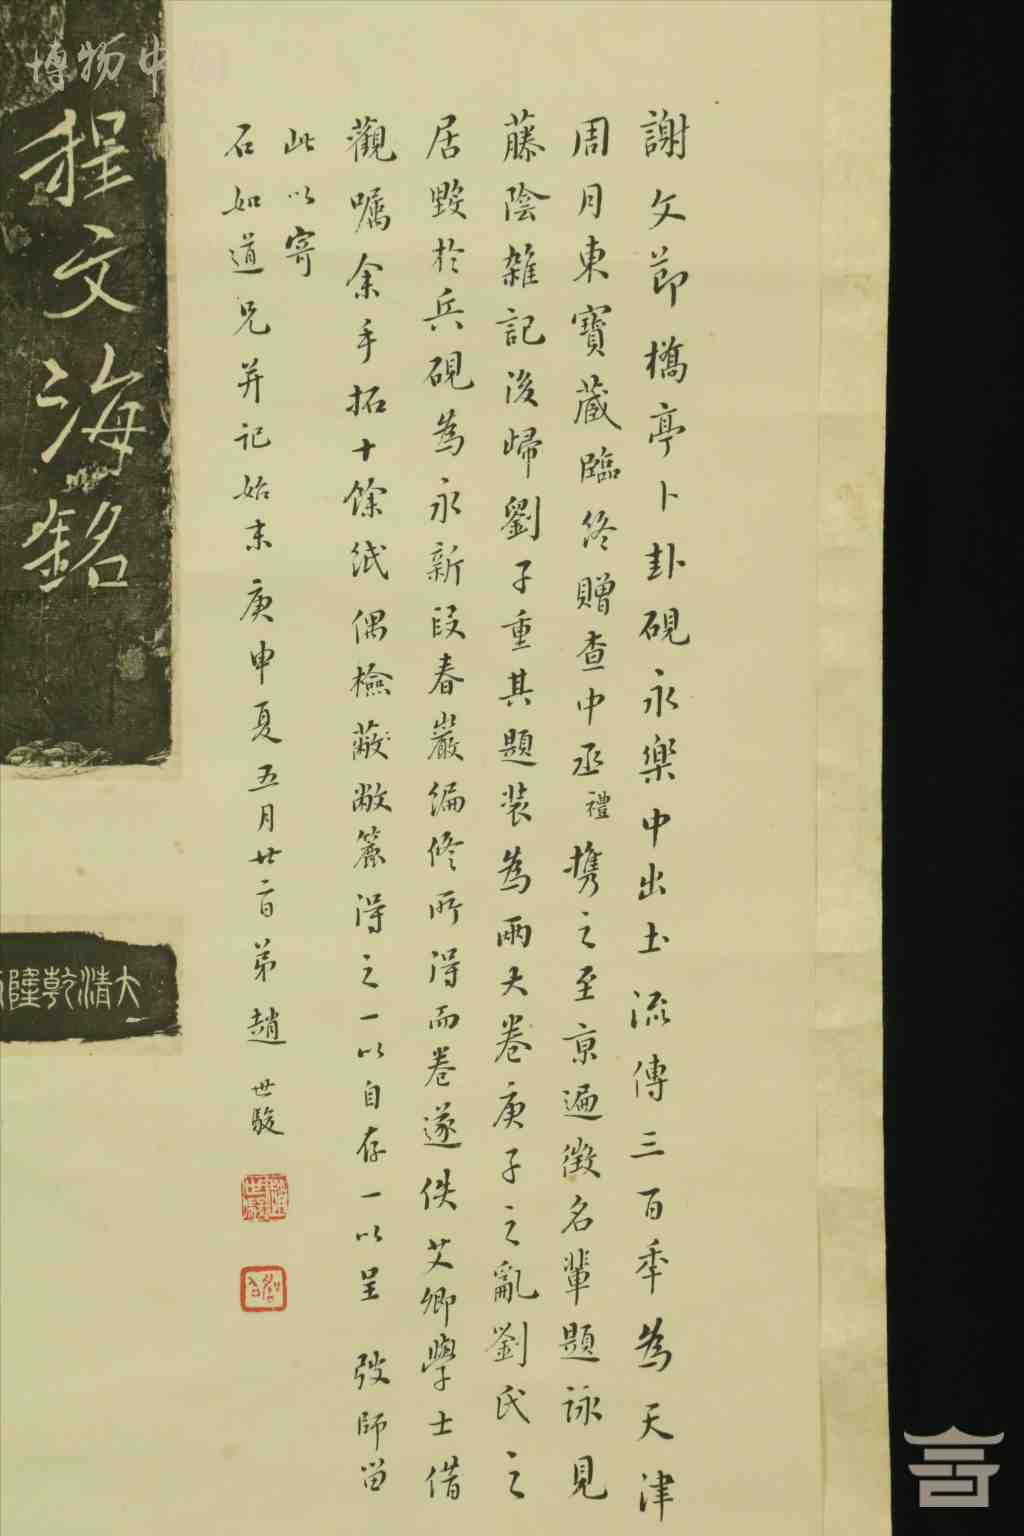 謝文節橋亭卜卦硯永樂中出土流傳三百秊為天津
周月東寶藏臨終贈查中丞禮攜之至京遍徵名輩題詠見
藤陰雜記後歸劉子重其題裝為兩大卷庚子之亂劉氏之
居毀於兵硯為永新段春巖編修所得而卷遂佚艾卿學士借
觀囑余手拓十餘紙偶檢蔽敝簏得之一以自存一以呈 弢師留
此以寄
石如道兄并記始末庚申夏五月廿二日弟趙世駿
程文海銘
大清乾隆
博物中